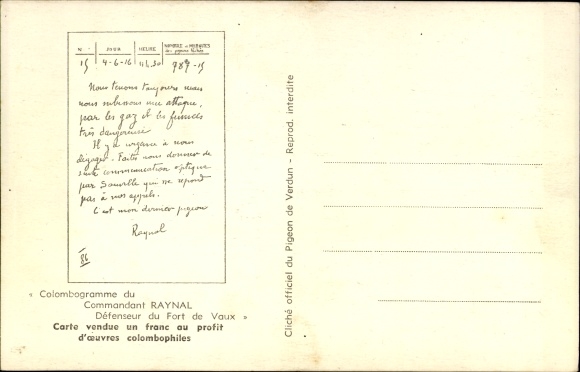 N° JOUR HEURE NOMBRE et MARQUES
des pigeons lâchés
15 4-6-16 11h30 787-15
Nous tenons toujours mais
nous subissons une attaque,
par les gaz et les fumées
très dangereuse
Il y a urgence à nous
dégager. Faites nous donner de
suite communication optique
par Souville qui ne répond
pas à nos appels.
C'est mon dernier pigeon
Raynal
« Colombogramme du
Commandant RAYNAL
Défenseur du Fort de Vaux »
Carte vendue un franc au profit
d'œuvres colombophiles
Cliché officiel du Pigeon de Verdun - Reprod. interdite